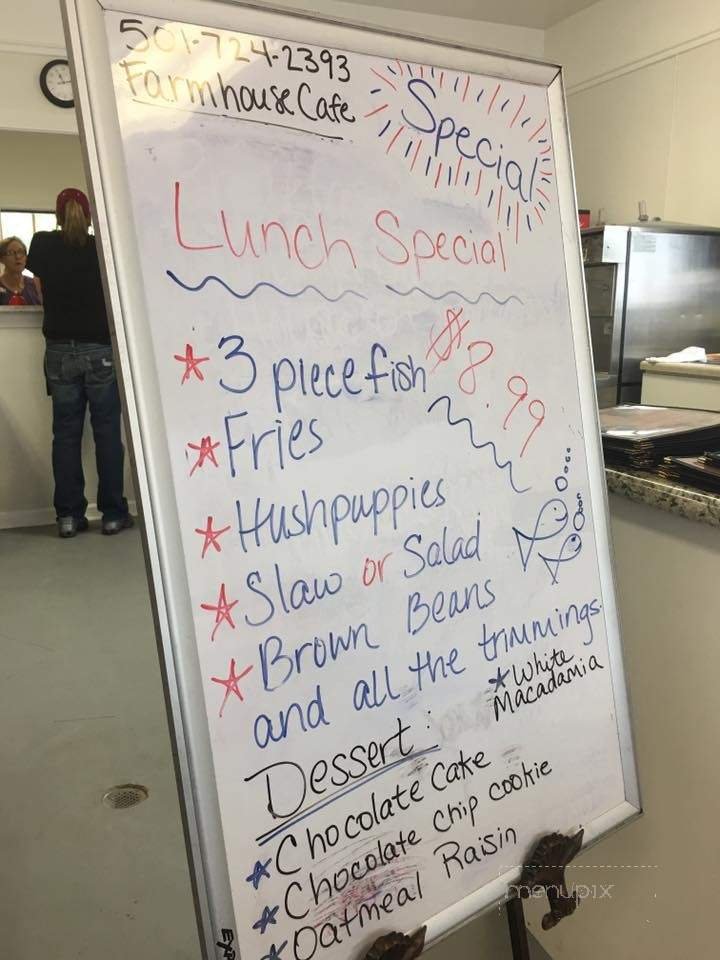 501-724-2393
Farmhouse Cafe
Special
Lunch Special
3 piece fish
$8.99
Fries
Hushpuppies
Slaw or Salad
Brown Beans
and all the trimmings.
Dessert:
White
Macadamia
Chocolate Cake
Chocolate chip cookie
Oatmeal Raisin
menupix